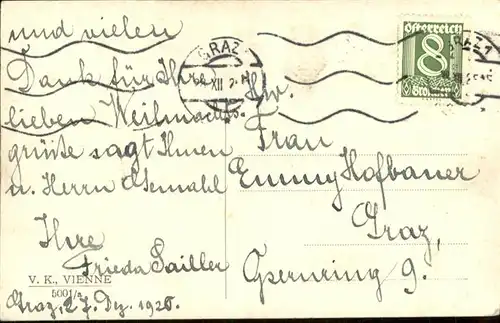 und vielen
Dank für Ihre
lieben Weihnachts-
grüße sagt Ihnen
u. Herrn Gemahl
Ihre
Frieda Sailler
V. K., VIENNE
5001/2
Graz, 27. Dez. 1925.
GRAZ
XII
Österreich
8
Groschen
GRAZ 1
Frau
Emmy Hofbauer
Graz,
Opernring 9.